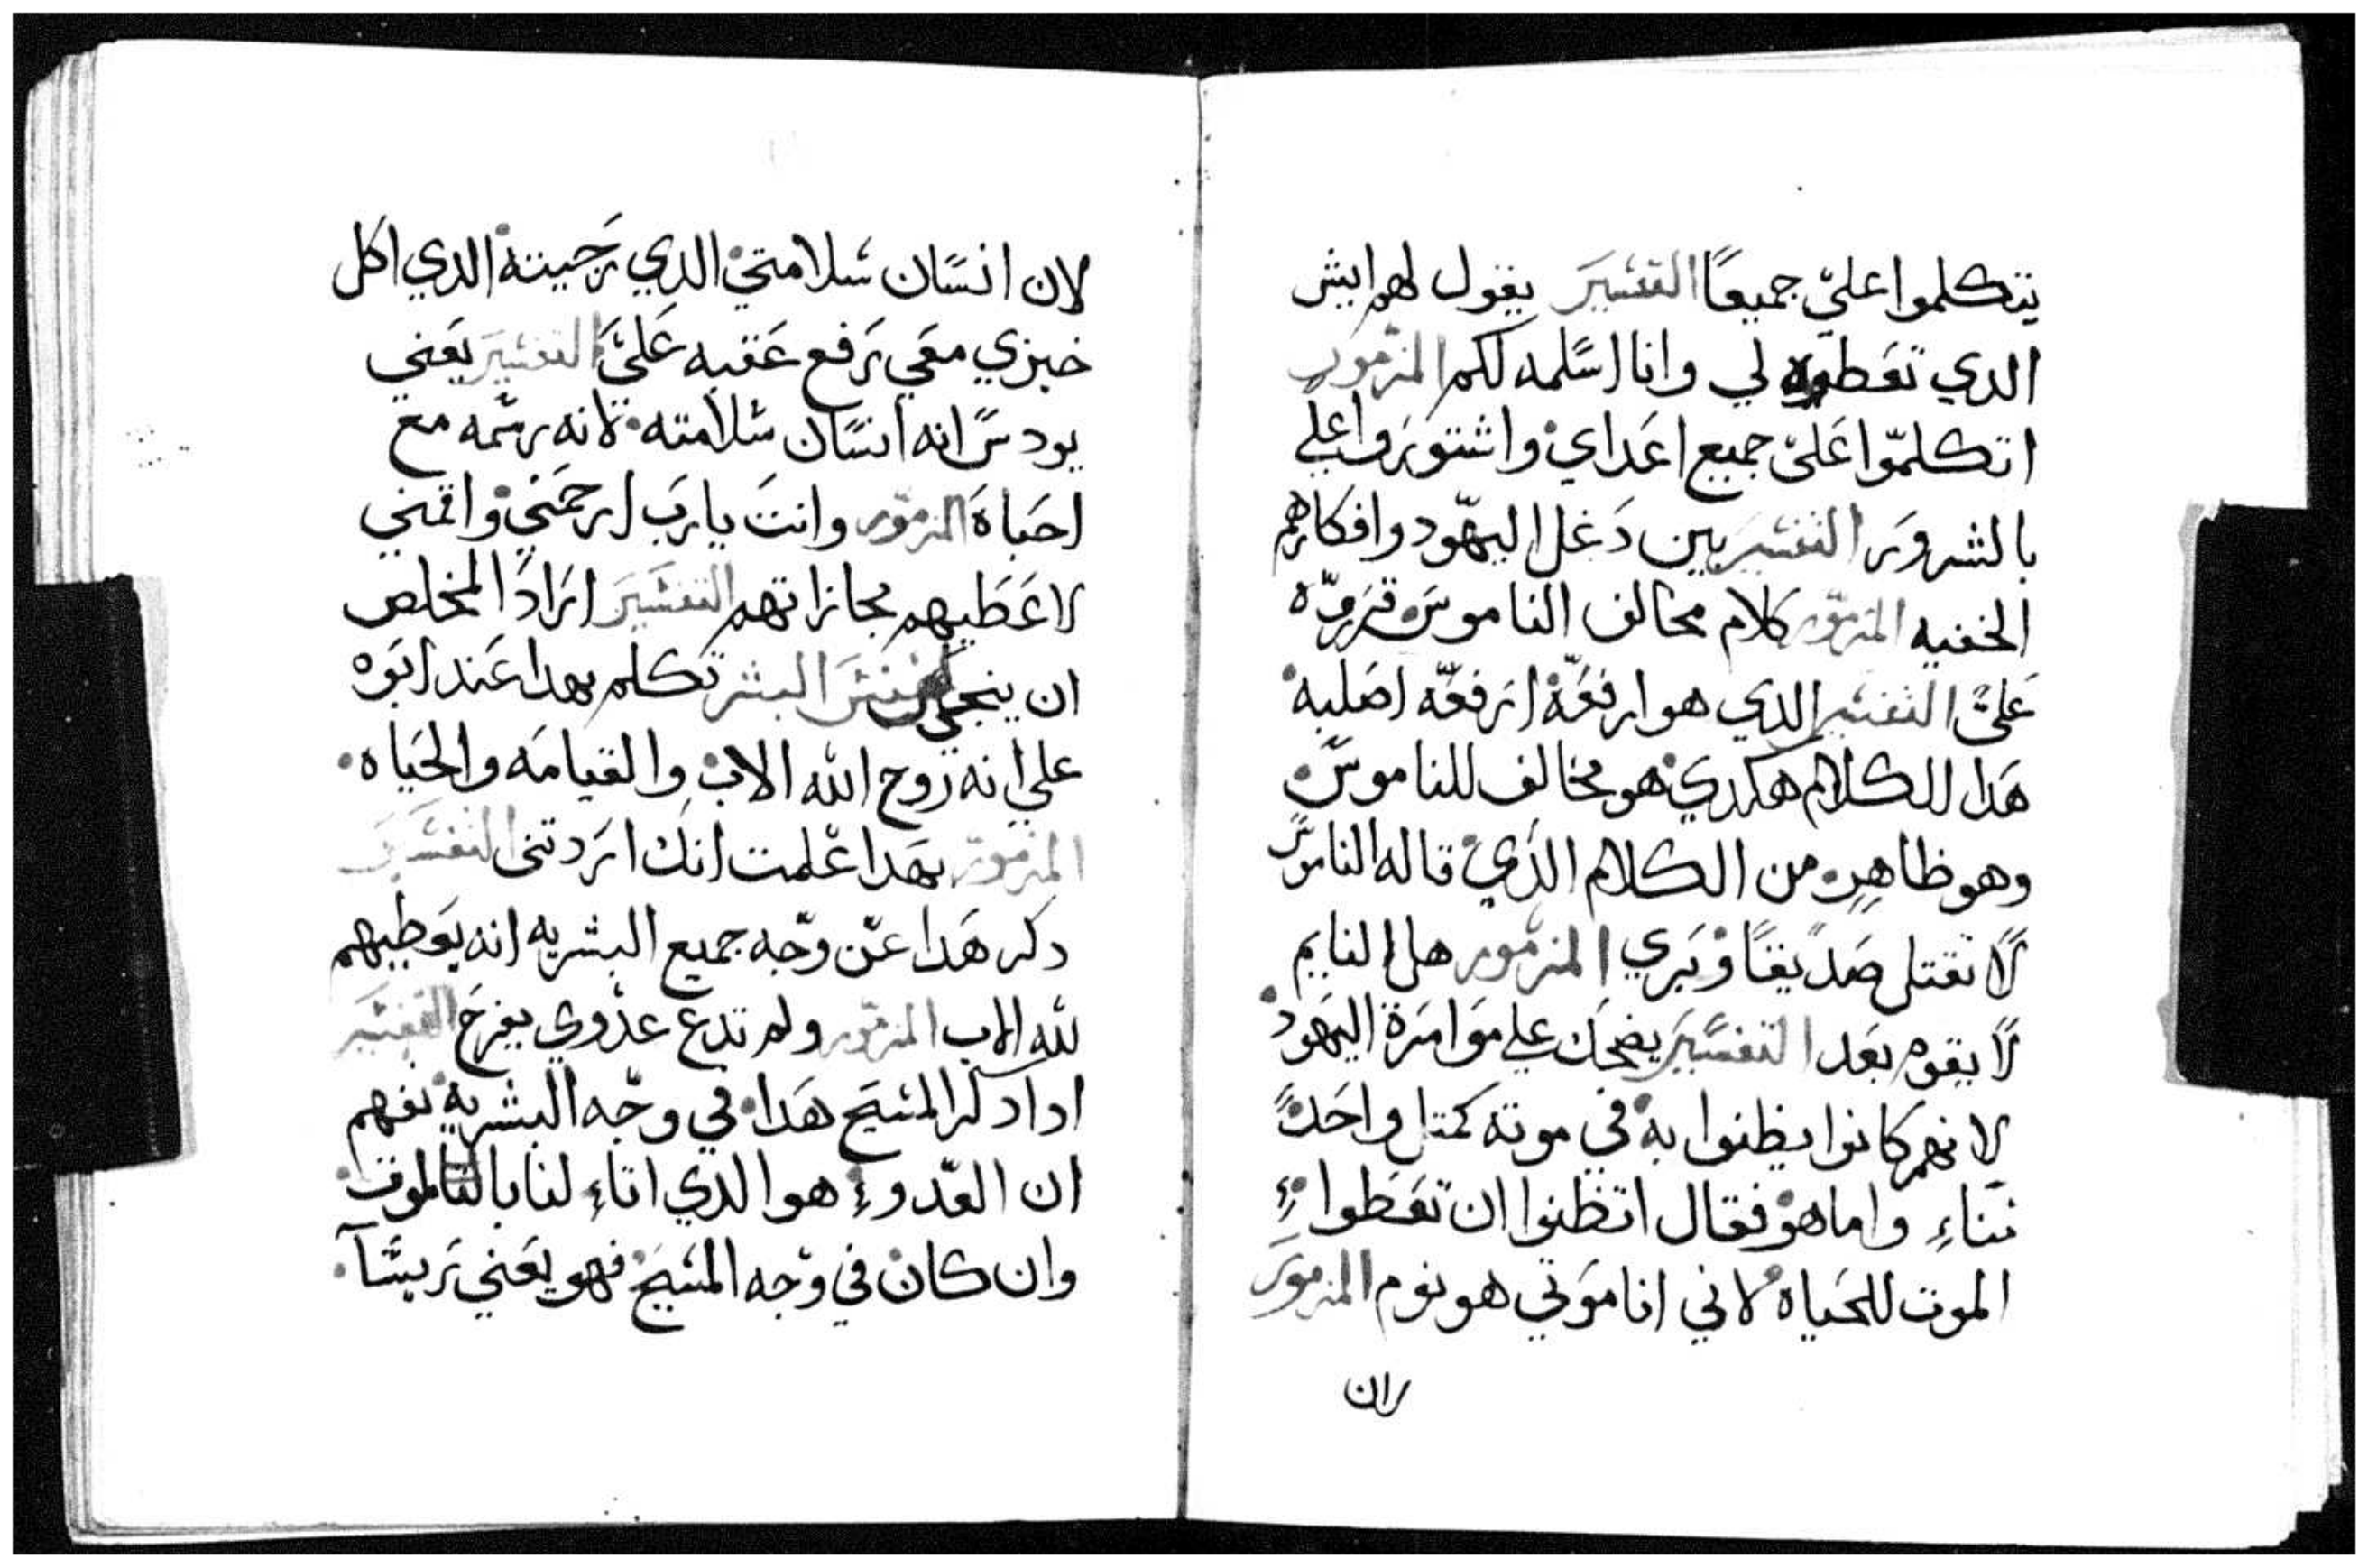 يتكلموا عليّ جميعًا التفسير يقول لهم ايش
الدي تعطوه لي وانا اسلمه لكم المزمور
اتكلموا عليّ جميع اعداي واشتوروا علي
بالشرور التفسير بين دغل اليهود وافكارهم
الخفيه المزمور كلام مخالف الناموس قرروه
عليّ التفسير الدي هو ارفعه ارفعه اصلبه
هدا الكلام هكدي هو مخالف للناموس
وهو ظاهر من الكلام الدي قاله الناموس
لا تقتل صديقًا وبري المزمور هل النايم
لا يقوم بعد التفسير يضحك علي موامرة اليهود
لانهم كانوا يظنوا به في موته كمتل واحد
نناء واما هو فقال اتظنوا ان تعطوا
الموت للحياه لاني انا موتي هو نوم المزمور
ران
لان انسان سلامتي الدي رجيته الدي اكل
خبزي معي رفع عقبه عليّ التفسير يعني
يودس انه انسان سلامته لانه رسمه مع
احباه المزمور وانت يارب ارحمني واقمني
لاعطيهم مجازاتهم التفسير اراد المخلص
ان ينجي جنس البشر تكلم بهدا عند ابوه
علي انه روح الله الاب والقيامه والحياه
المزمور بهدا علمت انك اردتني التفسير
دكر هدا عن وجه جميع البشريه انه يوطيهم
لله الاب المزمور ولم تدع عدوي يفرح التفسير
ادا دكر المسيح هدا في وجه البشريه نفهم
ان العدو هو الدي اتاء لنا بالموت
وان كان في وجه المسيح فهو يعني ريسا